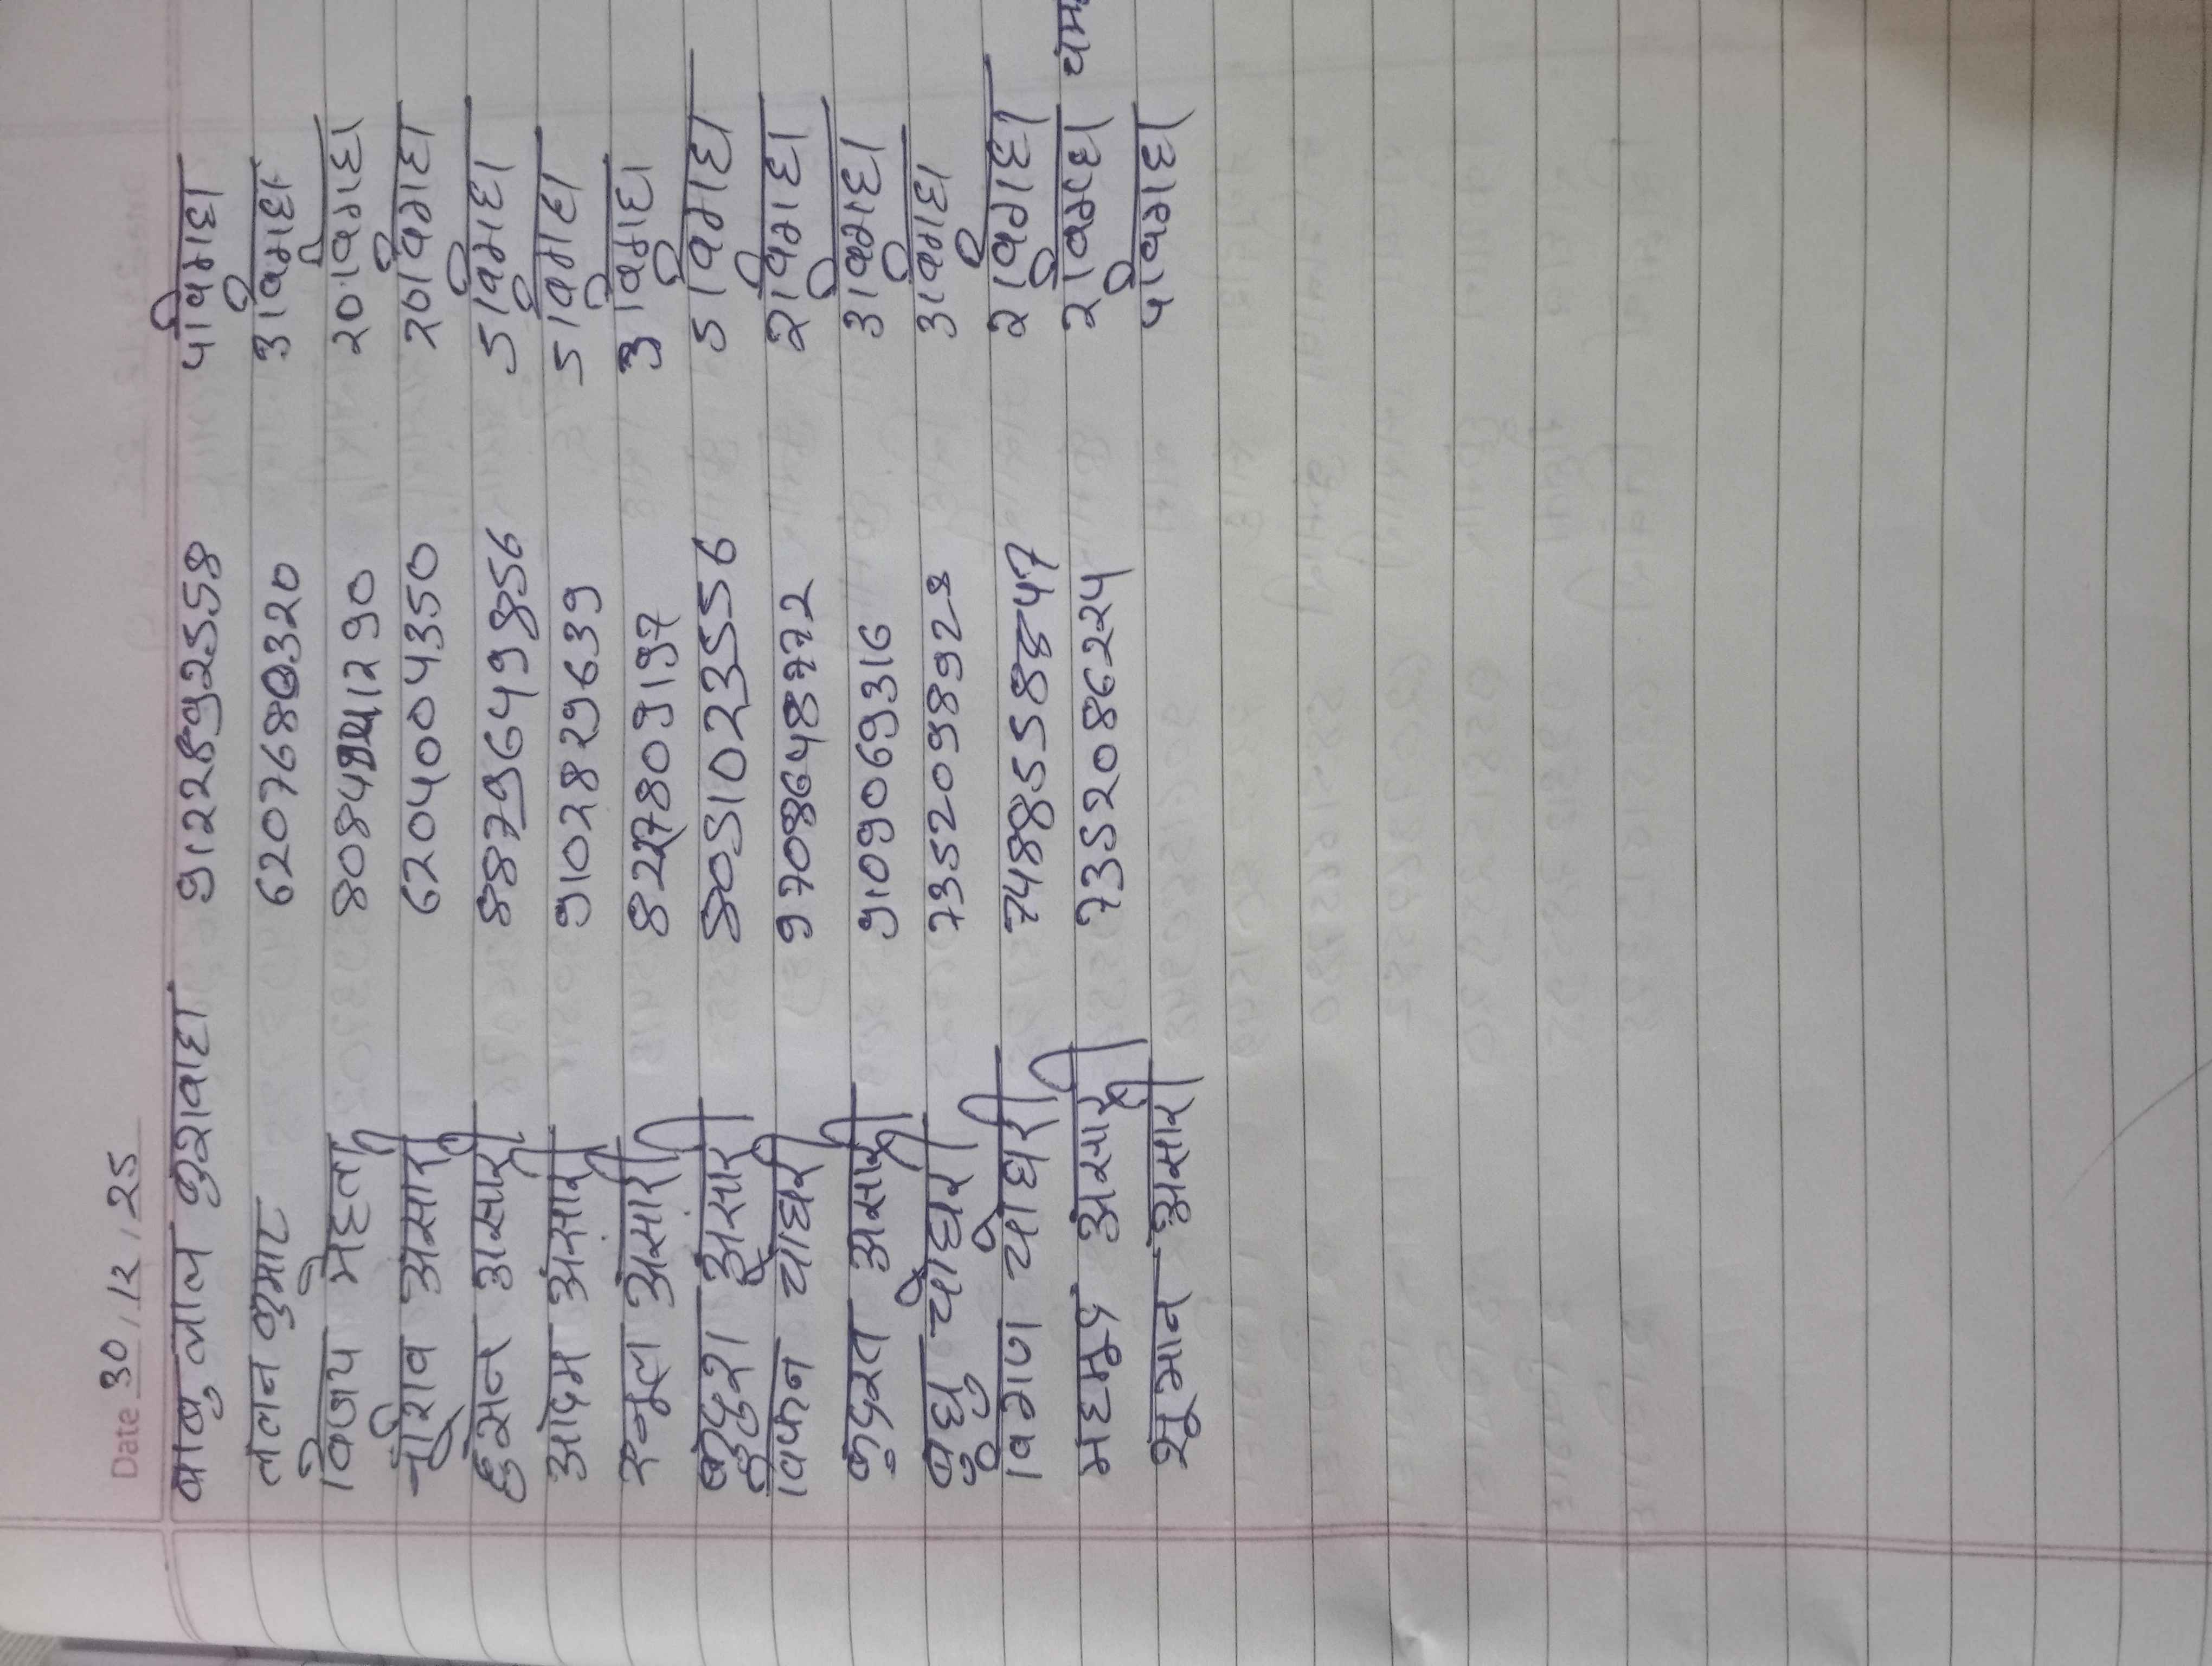 Date 30/12/25
बाबु लाल कुशवाहा 9122892558 ५ विगाहा
ललन कुमार 6207680320 3 विगहा
विजय मेहता 8084 1290 20 विगाहा
नूराव अंसारी 6204004350 20 विगाहा
हुसन अंसारी 8879649856 5 विगाहा
आदम अंसारी 9102829639 5 विगाहा
रनूल अंसारी 8227809197 3 विगाहा
कुदुश अंसारी 8051023556 5 विगाहा
विफन चौधरी 9708648772 2 विगाहा
कुदरत अंसारी 9109069316 3 विगाहा
बुधु चौधरी 7352098928 3 विगाहा
विगण चौधरी 7488558547 2 विगाहा
महमुद अंसारी 7352086224 2 विगहा
शुमान अंसारी ५ विगाहा